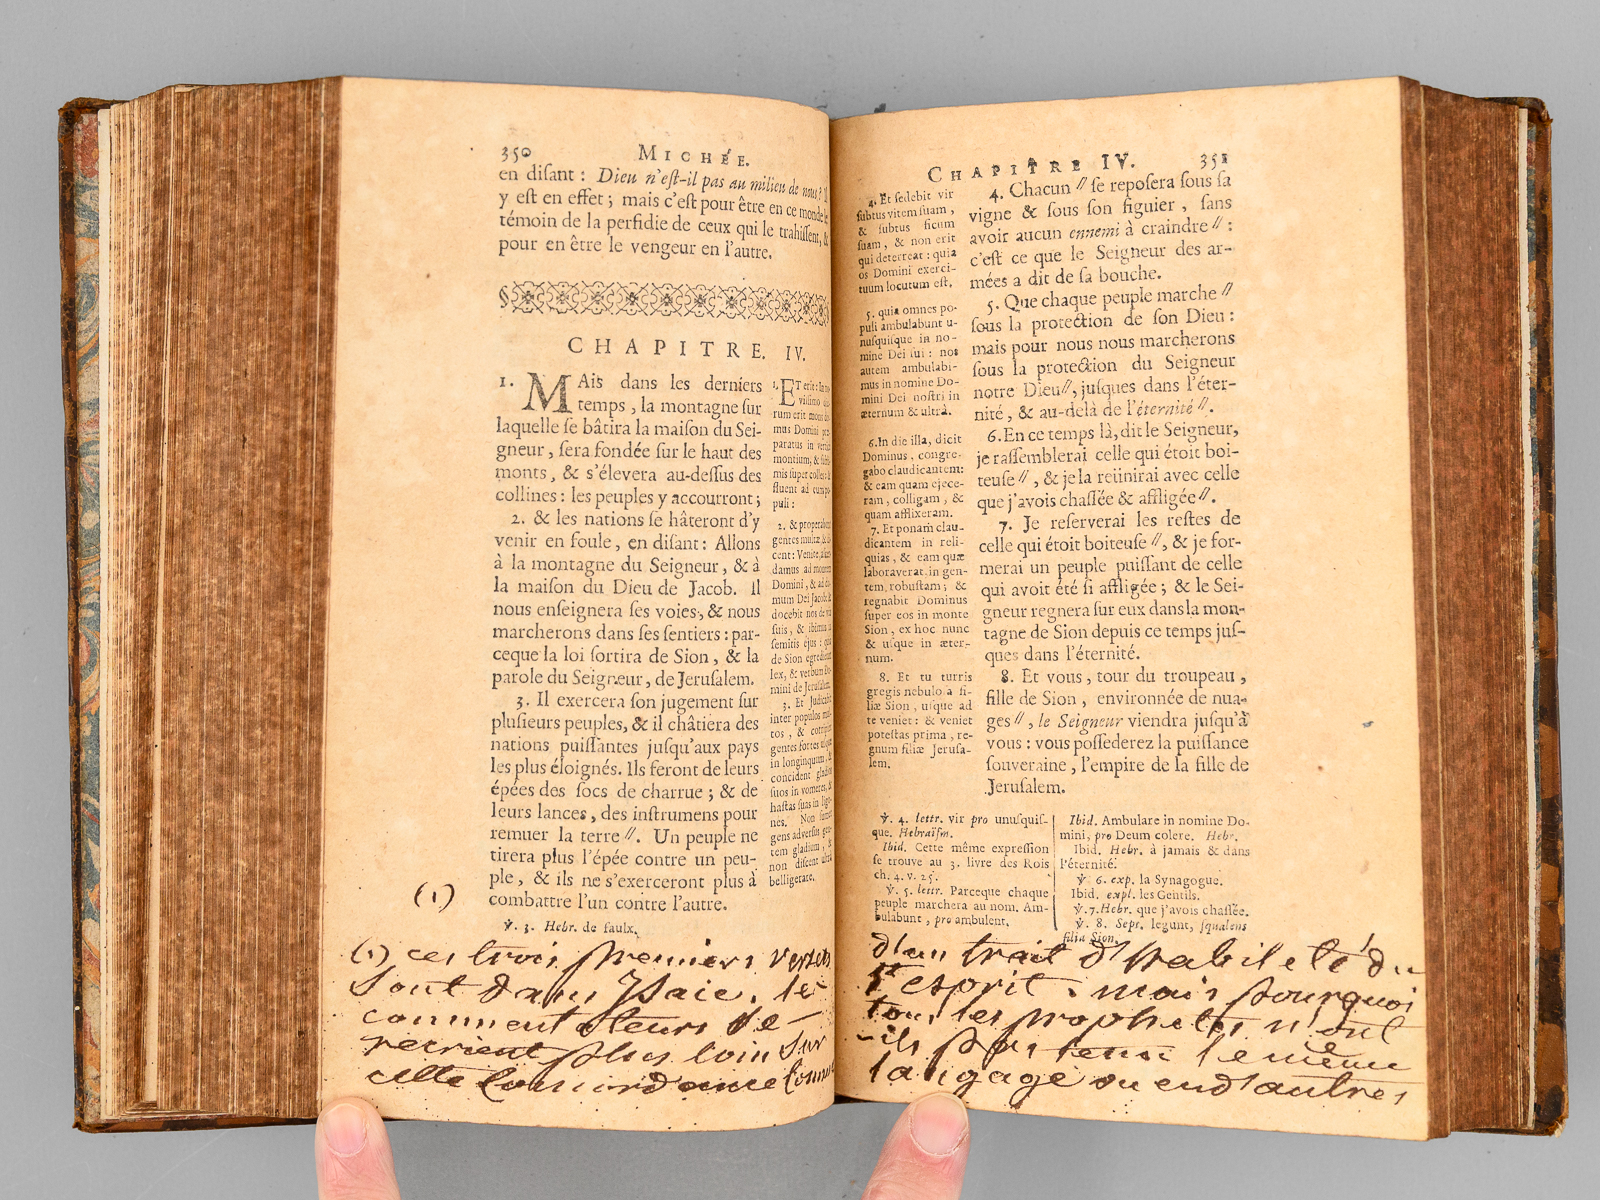 350 MICHÉE.
en disant : Dieu n'est-il pas au milieu de nous ? Il
y est en effet ; mais c'est pour être en ce monde le
témoin de la perfidie de ceux qui le trahissent, &
pour en être le vengeur en l'autre.
CHAPITRE. IV.
1. MAis dans les derniers
temps, la montagne sur
laquelle se bâtira la maison du Sei-
gneur, sera fondée sur le haut des
monts, & s'élevera au-dessus des
collines : les peuples y accourront ;
2. & les nations se hâteront d'y
venir en foule, en disant : Allons
à la montagne du Seigneur, & à
la maison du Dieu de Jacob. Il
nous enseignera ses voies, & nous
marcherons dans ses sentiers : par-
ceque la loi sortira de Sion, & la
parole du Seigneur, de Jerusalem.
3. Il exercera son jugement sur
plusieurs peuples, & il châtiera des
nations puissantes jusqu'aux pays
les plus éloignés. Ils feront de leurs
épées des socs de charrue ; & de
leurs lances, des instrumens pour
remuer la terre //. Un peuple ne
tirera plus l'épée contre un peu-
ple, & ils ne s'exerceront plus à
combattre l'un contre l'autre.
1. ET erit : In
vissimo
rum erit mons
mus Domini
paratus in
montium, &
mis super colles :
fluent ad
puli :
2. & properabunt
gentes multæ, &
cent : Venite,
damus ad montem
Domini, & ad
mum Dei Jacob :
docebit nos de
suis, & ibimus
semitis ejus :
de Sion egredietur
lex, & verbum
mini de Jerusalem.
3. Et judicabit
inter populos
tos, &
gentes fortes
in longinquum :
concident gladios
suos in vomeres, &
hastas suas in
nes. Non sumet
gens adversus
tem gladium, &
non discent ultra
belligerare.
℣. 3. Hebr. de faulx.
(1)
(1) ces trois premiers versets
sont dans Isaie. les
commentateurs se
recrient plus loin sur
cette concordance comme
CHAPITRE IV. 351
4. Et sedebit vir
subtus vitem suam,
& subtus ficum
suam, & non erit
qui deterreat : quia
os Domini exerci-
tuum locutum est.
5. quia omnes po-
puli ambulabunt u-
nusquisque in no-
mine Dei sui : nos
autem ambulabi-
mus in nomine Do-
mini Dei nostri in
æternum & ultrà.
6. In die illa, dicit
Dominus, congre-
gabo claudicantem :
& eam quam ejece-
ram, colligam, &
quam afflixeram.
7. Et ponam clau-
dicantem in reli-
quias, & eam quæ
laboraverat, in gen-
tem robustam ; &
regnabit Dominus
super eos in monte
Sion, ex hoc nunc
& usque in æter-
num.
8. Et tu turris
gregis nebulosa fi-
liæ Sion, usque ad
te veniet : & veniet
potestas prima, re-
gnum filiæ Jerusa-
lem.
4. Chacun // se reposera sous sa
vigne & sous son figuier, sans
avoir aucun ennemi à craindre // :
c'est ce que le Seigneur des ar-
mées a dit de sa bouche.
5. Que chaque peuple marche //
sous la protection de son Dieu :
mais pour nous nous marcherons
sous la protection du Seigneur
notre Dieu //, jusques dans l'éter-
nité, & au-delà de l'éternité //.
6. En ce temps là, dit le Seigneur,
je rassemblerai celle qui étoit boi-
teuse //, & je la réünirai avec celle
que j'avois chassée & affligée //.
7. Je reserverai les restes de
celle qui étoit boiteuse //, & je for-
merai un peuple puissant de celle
qui avoit été si affligée ; & le Sei-
gneur regnera sur eux dans la mon-
tagne de Sion depuis ce temps jus-
ques dans l'éternité.
8. Et vous, tour du troupeau,
fille de Sion, environnée de nua-
ges //, le Seigneur viendra jusqu'à
vous : vous possederez la puissance
souveraine, l'empire de la fille de
Jerusalem.
℣. 4. lettr. vir pro unusquis-
que. Hebraïsm.
Ibid. Cette même expression
se trouve au 3. livre des Rois
ch. 4. v. 25.
℣. 5. lettr. Parceque chaque
peuple marchera au nom. Am-
bulabunt, pro ambulent.
Ibid. Ambulare in nomine Do-
mini, pro Deum colere. Hebr.
Ibid. Hebr. à jamais & dans
l'éternité.
℣. 6. exp. la Synagogue.
Ibid. expl. les Gentils.
℣. 7. Hebr. que j'avois chassée.
℣. 8. Sept. legunt, squalens
filia Sion.
d'un trait d'habileté du
St esprit. mais pourquoi
tous les prophetes n'ont
-ils pas tenu le même
langage ou en d'autres